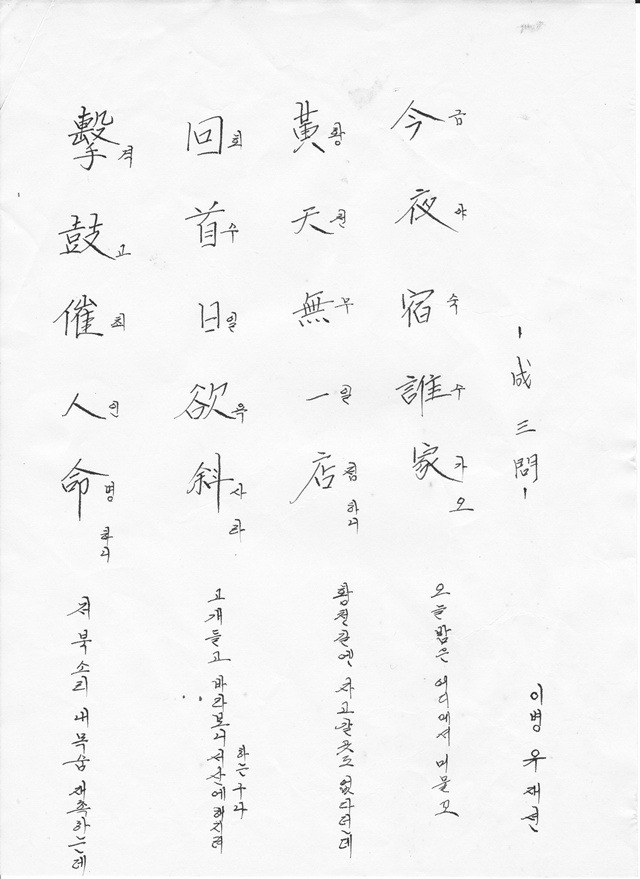 擊鼓催人命
격고최인명하니
저 북소리 내 목숨 재촉하는데
回首日欲斜
회수일욕사라
고개들고 바라보니 서산에 해지려
하는구나
黃天無一店
황천무일점하니
황천길엔 자고갈 곳도 없다던데
今夜宿誰家
금야숙수가오
오늘밤은 어디에서 머물꼬
-成三問-
이병 우재선